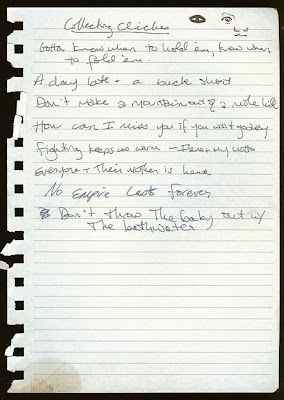 Collecting Cliches
Gotta know when to hold 'em, know when
to fold 'em.
A day late + a buck short
Don't make a mountain out of a mole hill
How can I miss you if you won't go away
Fighting keeps us warm –
Everyone + Their mother is here
No Empire Lasts Forever
Don't throw The baby out w/
The bathwater